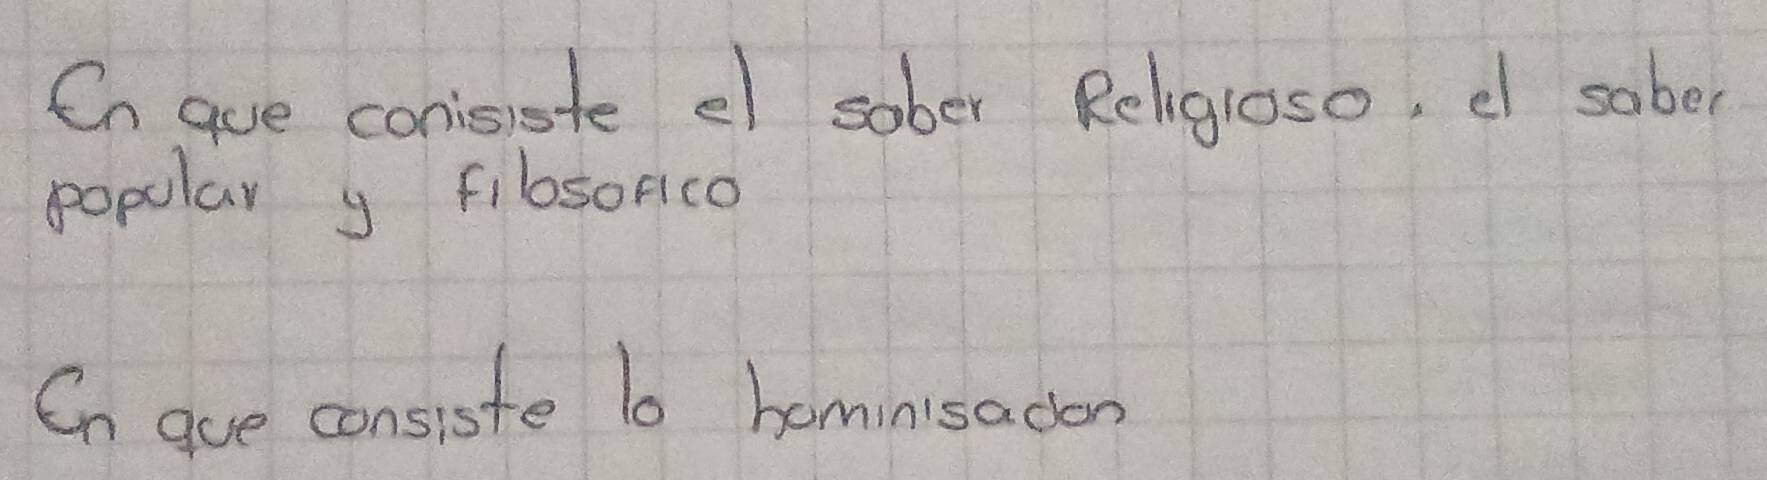 En que conisiste el saber Religioso, el saber
popular y filosofico
En que consiste la hominisacion